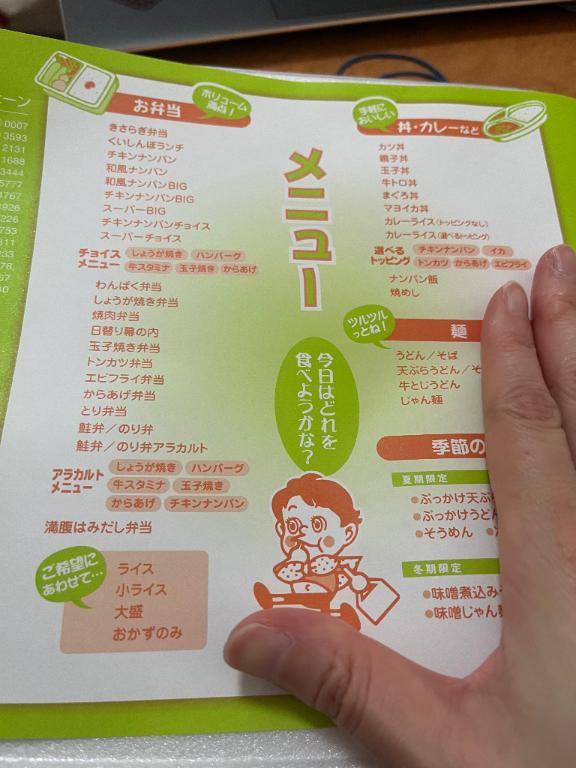 ーン
0007
3593
2131
1688
3444
5777
4767
3926
226
753
811
233
78,
57
40
お弁当
ボリューム
満点!
きさらぎ弁当
くいしんぼランチ
チキンナンバン
和風ナンバン
和風ナンバンBIG
チキンナンバンBIG
スーパーBIG
チキンナンバンチョイス
スーパーチョイス
チョイス
メニュー
しょうが焼き ハンバーグ
牛スタミナ 玉子焼き からあげ
わんぱく弁当
しょうが焼き弁当
焼肉弁当
日替り幕の内
玉子焼き弁当
トンカツ弁当
エビフライ弁当
からあげ弁当
とり弁当
鮭弁/のり弁
鮭弁/のり弁アラカルト
アラカルト
メニュー
しょうが焼き ハンバーグ
牛スタミナ 玉子焼き
からあげ チキンナンバン
満腹はみだし弁当
ご希望に
あわせて…
ライス
小ライス
大盛
おかずのみ
メニュー
今日はどれを
食べようかな?
手軽に
おいしい
丼・カレーなど
カツ丼
親子丼
玉子丼
牛トロ丼
まぐろ丼
マヨイカ丼
カレーライス(トッピングなし)
カレーライス(選べるトッピング)
選べる
トッピング
チキンナンバン イカ
トンカツ からあげ エビフライ
ナンバン飯
焼めし
ツルツル
っとね!
麺
うどん/そば
天ぷらうどん/そ
牛とじうどん
じゃん麺
季節の
夏期限定
●ぶっかけ天ぷ
●ぶっかけうどん
●そうめん
冬期限定
●味噌煮込み
●味噌じゃん